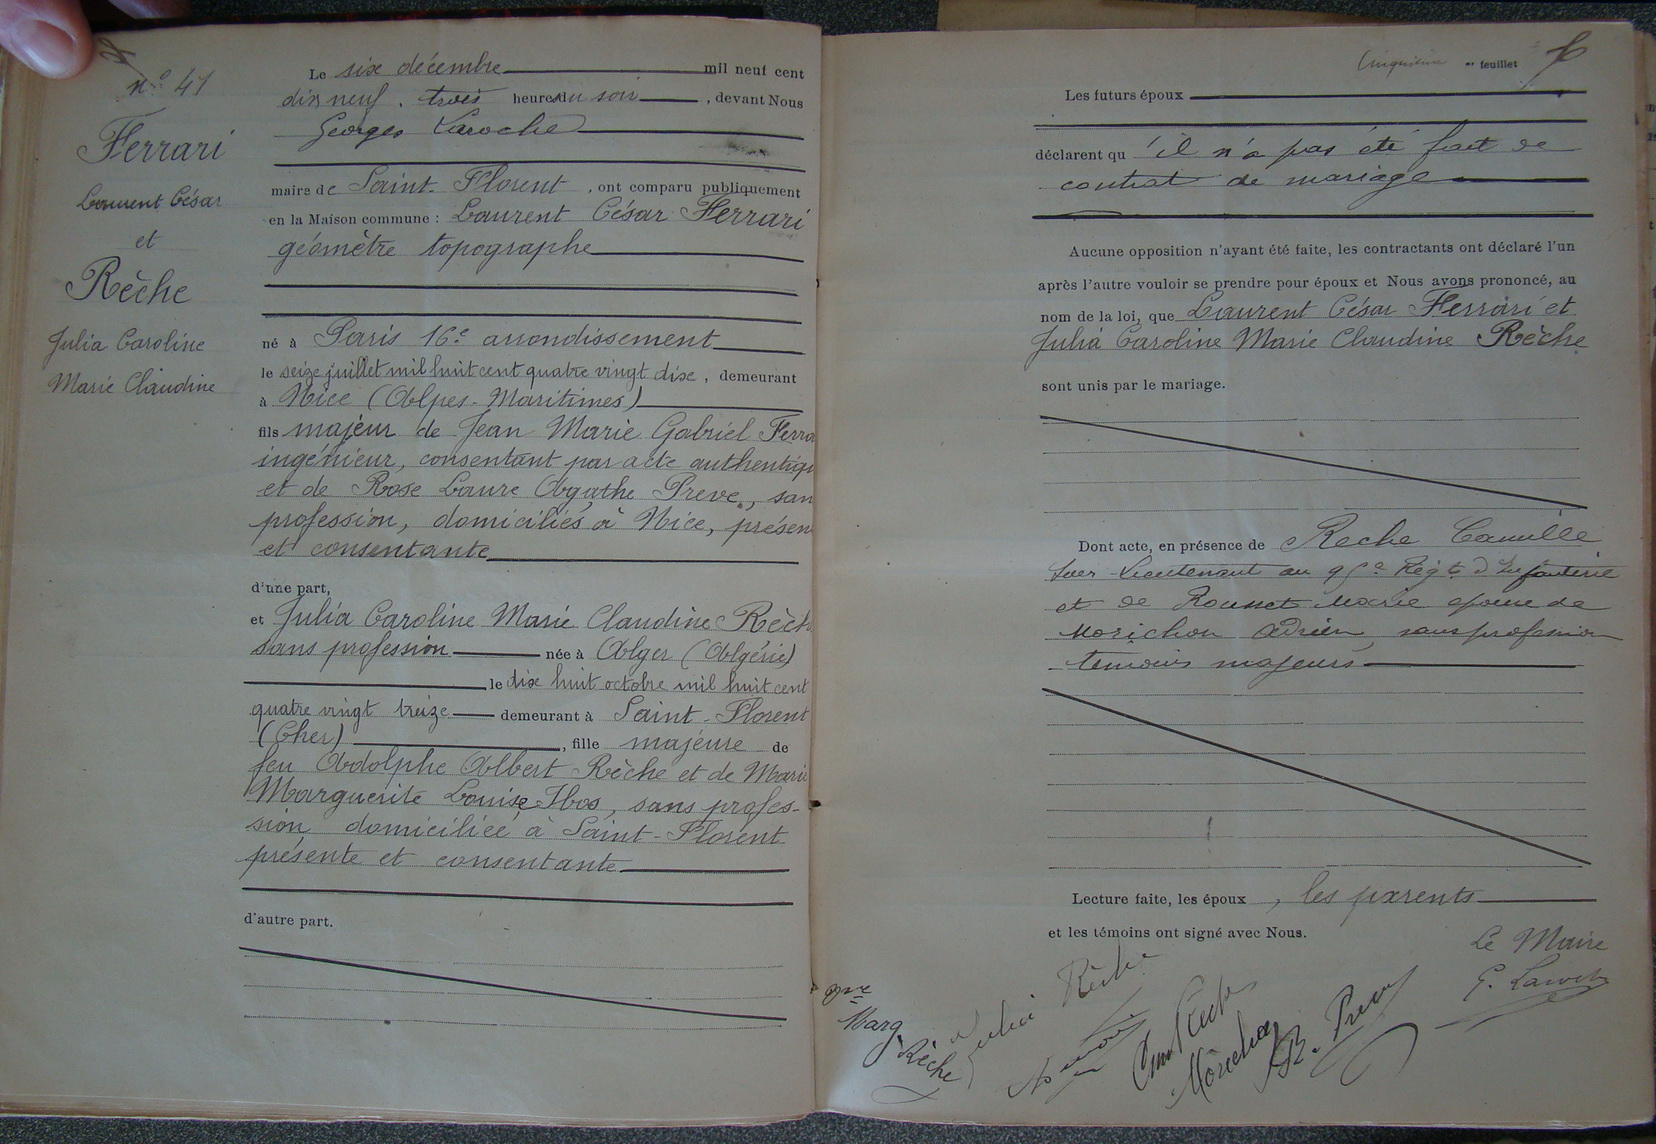 n° 41
Ferrari
Laurent César
et
Rèche
Julia Caroline
Marie Claudine
Le six décembre mil neuf cent
dix neuf, trois heures du soir, devant Nous
Georges Laroche
maire de Saint-Florent, ont comparu publiquement
en la Maison commune : Laurent César Ferrari
géomètre topographe
né à Paris 16e arrondissement
le seize juillet mil huit cent quatre vingt dix, demeurant
à Nice (Alpes-Maritimes)
fils majeur de Jean Marie Gabriel Ferra
ingénieur, consentant par acte authentiq
et de Rose Laure Agathe Preve, san
profession, domiciliés à Nice, présen
et consentante
d'une part,
et Julia Caroline Marie Claudine Rèch
sans profession née à Alger (Algérie)
, le dix huit octobre mil huit cent
quatre vingt treize demeurant à Saint-Florent
(Cher), fille majeure de
feu Adolphe Albert Rèche et de Marie
Marguerite Louise Ibos, sans profes-
sion domiciliée à Saint-Florent
présente et consentante
d'autre part.
Cinquième me feuillet
Les futurs époux
déclarent qu'il n'a pas été fait de
contrat de mariage
Aucune opposition n'ayant été faite, les contractants ont déclaré l'un
après l'autre vouloir se prendre pour époux et Nous avons prononcé, au
nom de la loi, que Laurent César Ferrari et
Julia Caroline Marie Claudine Rèche
sont unis par le mariage.
Dont acte, en présence de Reche Camille
Sous-Lieutenant au 95e Régt d'Infanterie
et de Rousset Marie épouse de
Morichon Adrien, sans profession
témoins majeurs
Lecture faite, les époux, les parents
et les témoins ont signé avec Nous.
Le Maire
G. Laroche
Julia Rèche
Marg. Rèche
Morichon
R. Preve